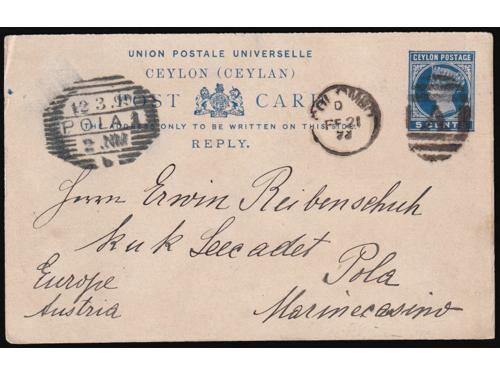 UNION POSTALE UNIVERSELLE
CEYLON (CEYLAN)
POST CARD
THE ADDRESS ONLY TO BE WRITTEN ON THIS SIDE.
REPLY.
CEYLON POSTAGE
5 CENTS
12.3.90
POLA 1
COLOMBO
D
FE 21
Herrn Erwin Reibenschuh
k u k Seecadet
Pola
Europe
Marinecasino
Austria